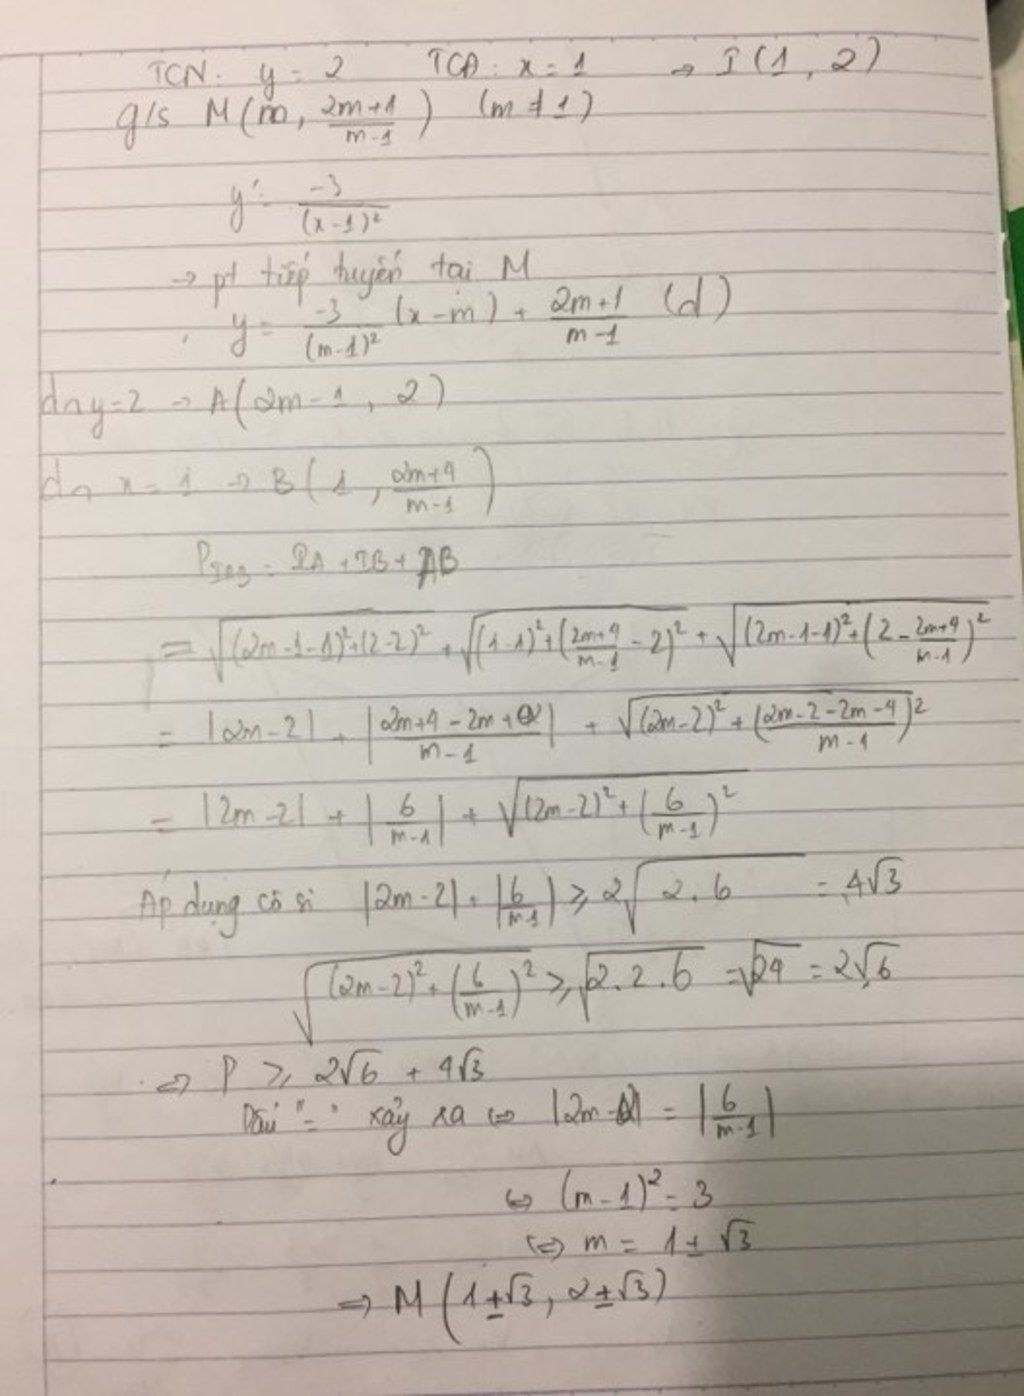 TCN: y = 2 TCĐ: x = 1 → I(1, 2)
g/s M(m, (2m+1)/(m-1)) (m ≠ 1)
y' = -3/(x-1)²
→ pt tiếp tuyến tại M
y = -3/(m-1)² (x-m) + (2m+1)/(m-1) (d)
d∩y=2 → A(2m-1, 2)
d∩ x=1 → B(1, (2m+4)/(m-1))
P_IAB = IA + IB + AB
= √((2m-1-1)²+(2-2)²) + √((1-1)²+((2m+4)/(m-1) - 2)²) + √((2m-1-1)²+(2-(2m+4)/(m-1))²)
= |2m-2| + |(2m+4-2m+2)/(m-1)| + √((2m-2)²+((2m-2-2m-4)/(m-1))²)
= |2m-2| + |6/(m-1)| + √((2m-2)²+(6/(m-1))²)
Áp dụng cô si |2m-2| + |6/(m-1)| ≥ 2√(2.6) = 4√3
√((2m-2)²+(6/(m-1))²) ≥ √(2.2.6) = √24 = 2√6
⇔ P ≥ 2√6 + 4√3
Dấu "=" xảy ra ⇔ |2m-2| = |6/(m-1)|
⇔ (m-1)² = 3
⇔ m = 1±√3
⇒ M(1±√3, 2±√3)